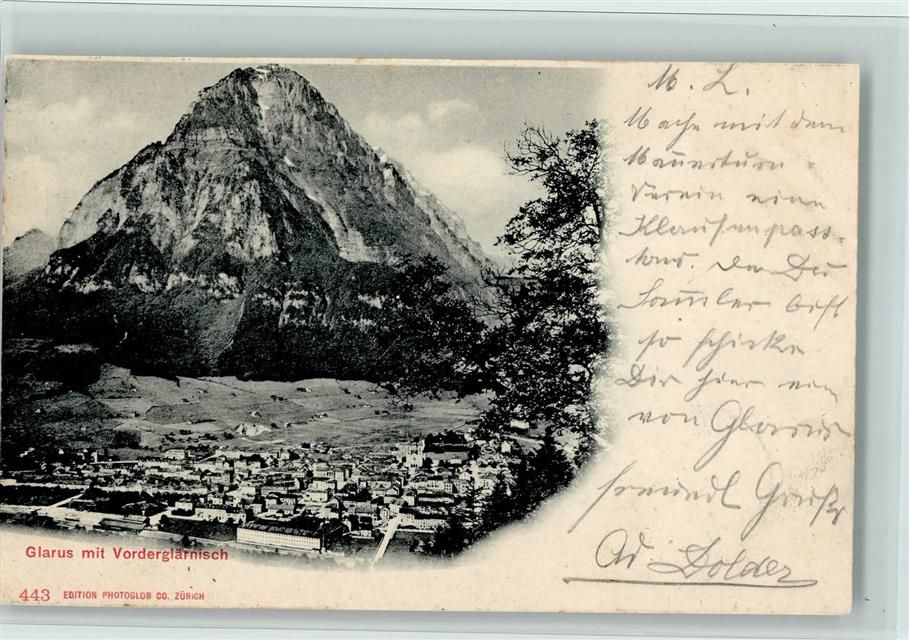 M. L.
Mache mit dem
Männerturn-
Verein eine
Klausenpass-
tour. Da Du
Sammler bist
so schicke
Dir hier ein
von Glarus
freundl Gruß
Ad Dolder
Glarus mit Vorderglärnisch
443 EDITION PHOTOGLOB CO. ZÜRICH